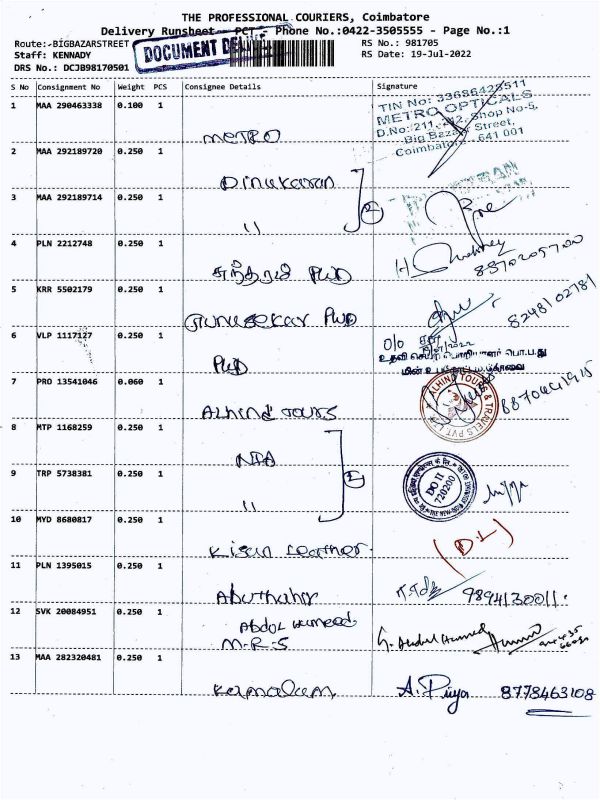 THE PROFESSIONAL COURIERS, Coimbatore
Delivery Runsheet - PCT - Phone No.:0422-3505555 - Page No.:1
Route:-BIGBAZARSTREET
RS No.: 981705
Staff: KENNADY
RS Date: 19-Jul-2022
DRS No.: DCJB98170501
DOCUMENT
S No Consignment No Weight PCS Consignee Details Signature
1 MAA 290463338 0.100 1
METRO
TIN No: 33686428511
METRO OPTICALS
D.No: 211, 212, Shop No-5,
Big Bazaar Street,
Coimbatore 641 001
2 MAA 292189720 0.250 1
Dinakaran
3 MAA 292189714 0.250 1
"
2
4 PLN 2212748 0.250 1
சுந்தரம் PWD
8870205700
5 KRR 5502179 0.250 1
Gunasekar PWD
8248102781
6 VLP 1117127 0.250 1
PWD
O/o
உதவி செயற் பொறியாளர் பொ.ப.து
7 PRO 13541046 0.060 1
ALhind Tours
ALHIND TOURS & TRAVELS PVT. LTD
8 MTP 1168259 0.250 1
NIA
9 TRP 5738381 0.250 1
"
2
DO II
720200
10 MYD 8680817 0.250 1
Kisan Leather
(D.L)
11 PLN 1395015 0.250 1
Abuthahir
9894130011
12 SVK 20084951 0.250 1
Abdul Hameed
M.R.S
G. Abdul Hameed
13 MAA 282320481 0.250 1
Kamalam
A. Priya 8778463108